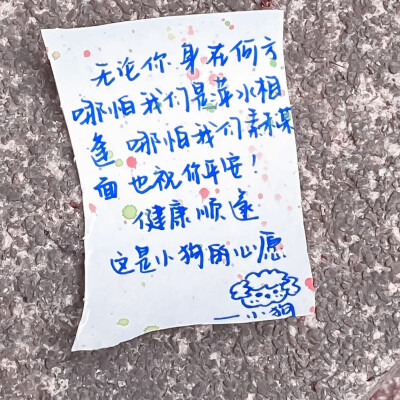 无论你身在何方
哪怕我们是萍水相
逢 哪怕我们素未某
面也祝你平安！
健康顺遂
这是小狗的心愿
——小狗